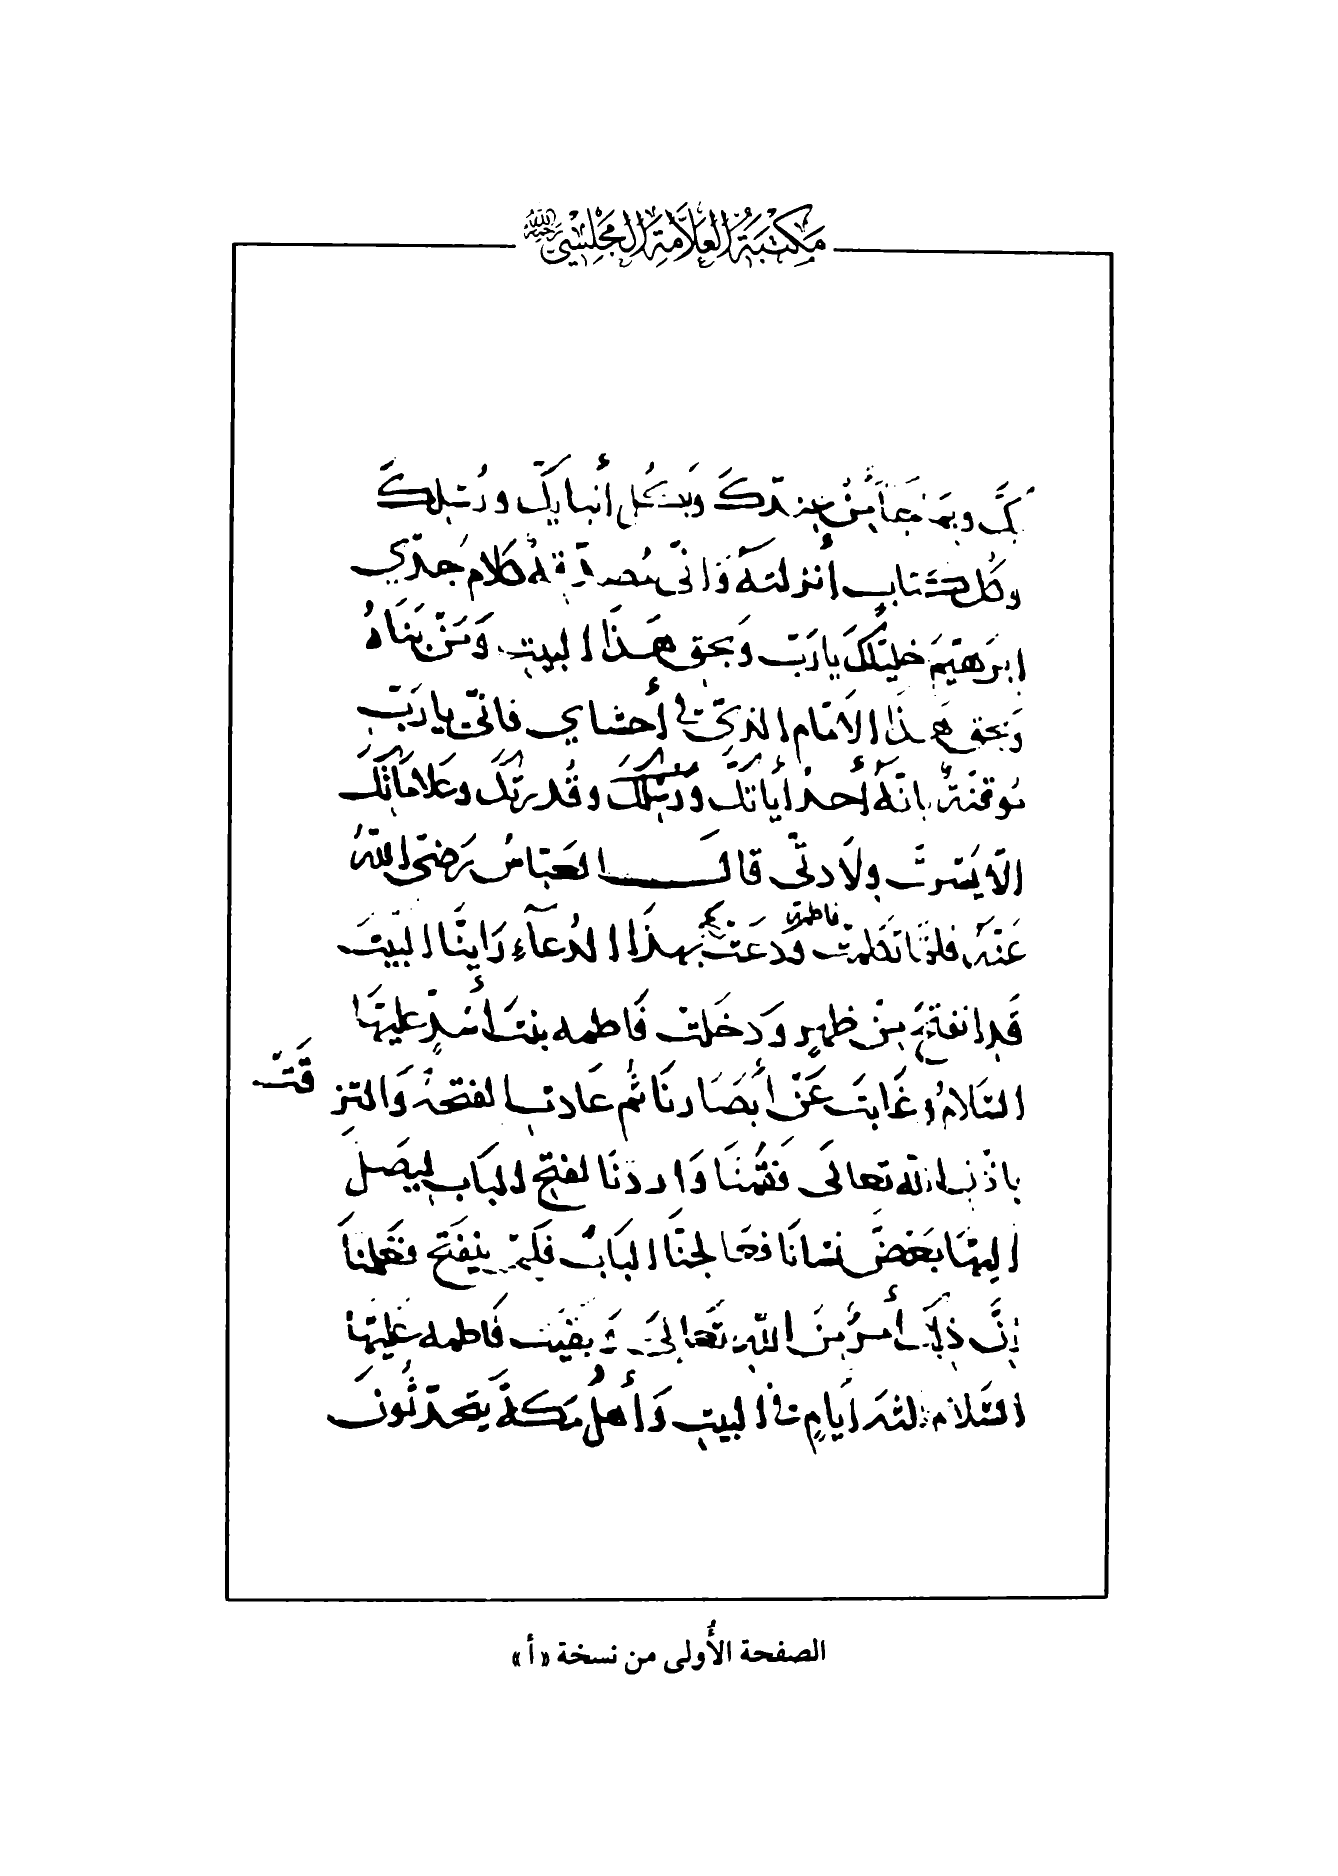 مكتبة العلامة المجلسي رحمه الله
بك وبما جاء من عندك وبكل أنبيايك ورسلك
وكل كتاب أنزلته واني مصدقة كلام جدي
ابرهيم خليلك يا رب وبحق هذا البيت ومن بناه
وبحق هذا الامام الذي في أحشاي فاني يا رب
موقنة بانه أحد أياتك ورسلك وقدرتك وعلاماتك
الا يسرت ولادتي قال العباس رضي الله
عنه فلما تكلمت فاطمة ودعت بهذا الدعآء راينا البيت
قد انفتح من ظهره ودخلت فاطمه بنت أسد عليها
السلام وغابت عن أبصارنا ثم عادت الفتحة والتزقت
باذن الله تعالى فقمنا واردنا لفتح الباب ليصل
اليها بعض نسانا فعالجنا الباب فلم ينفتح فعلمنا
إن ذلك أمر من الله تعالى وبقيت فاطمه عليها
السلام ثلثه أيام في البيت وأهل مكة يتحدثون
الصفحة الأولى من نسخة «أ»